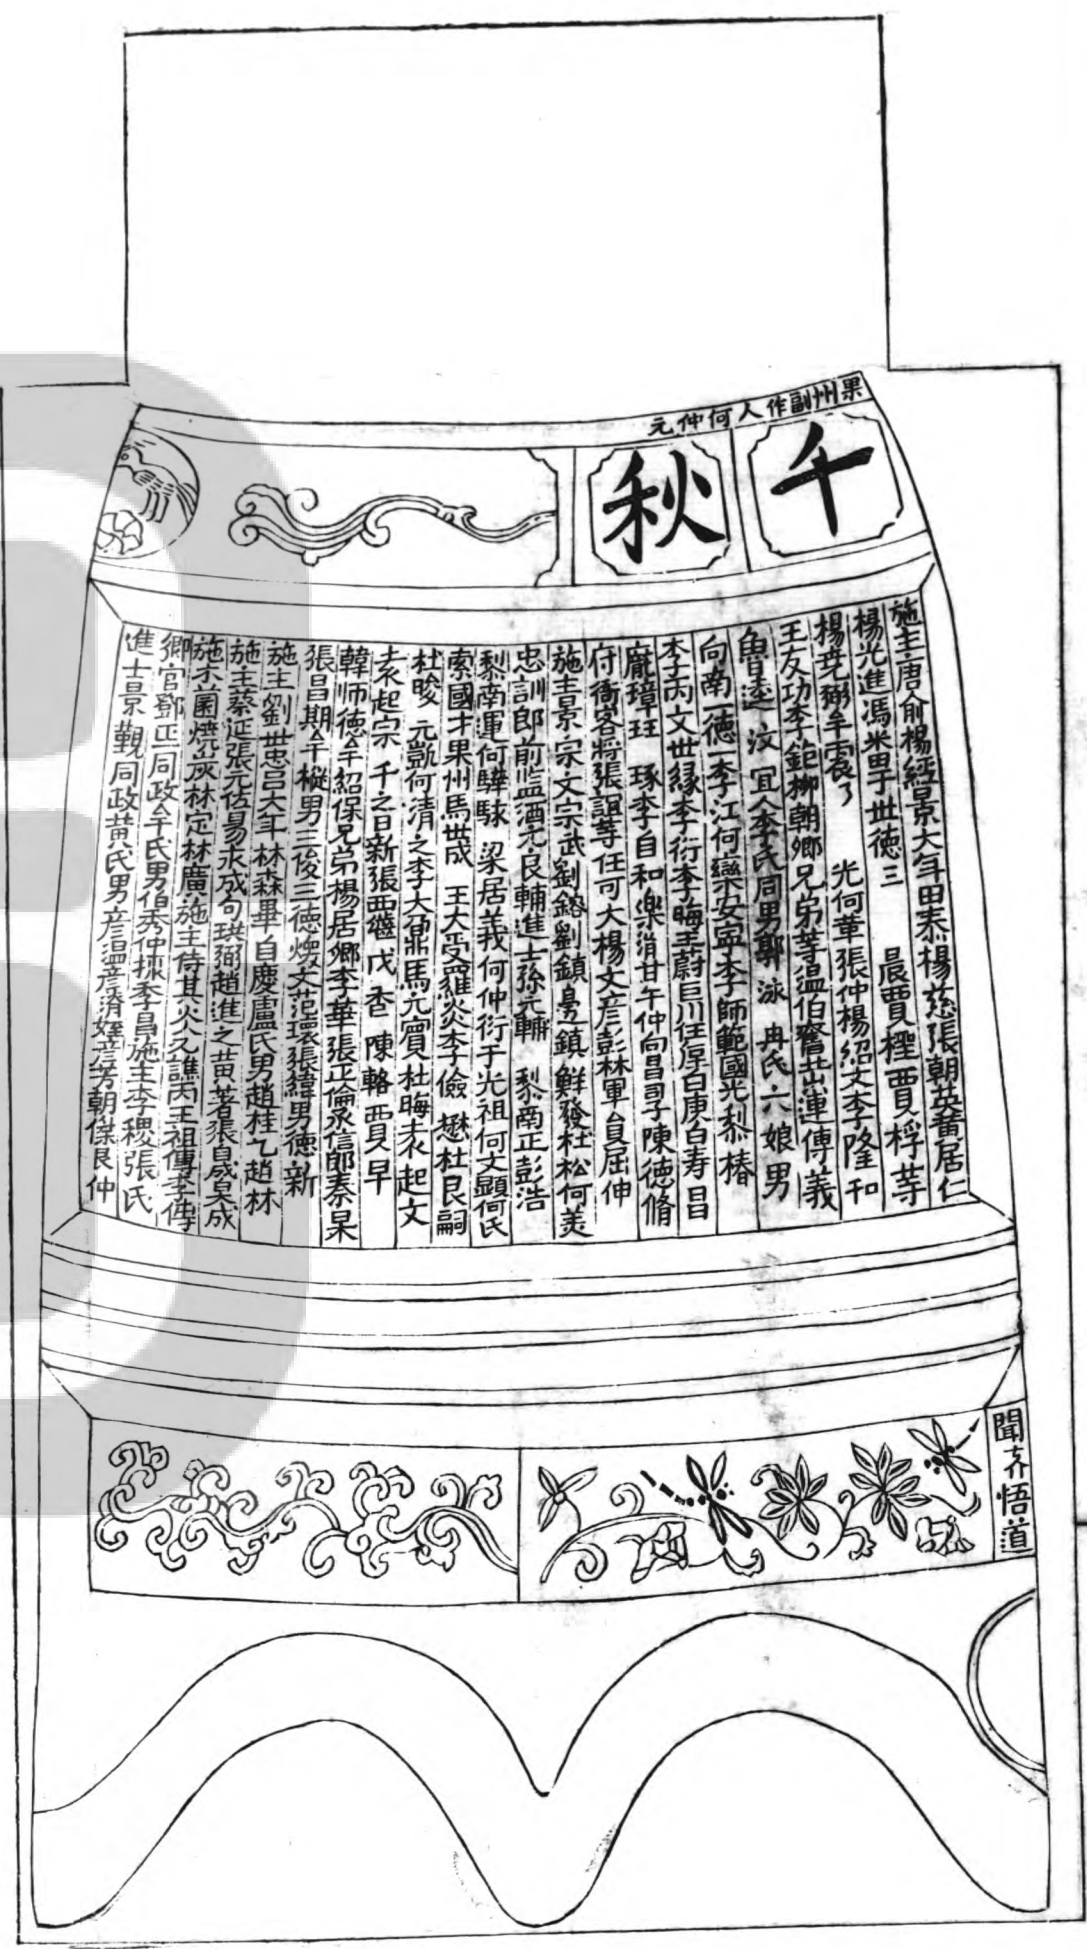 果州副作人何仲元
千秋
施主唐俞楊經景大年田泰楊慈張朝英黃居仁
楊光進馮米男世德三 晨賈桱賈桴等
楊堯弼牟震了 光何華張仲楊紹文李隆和
王友功李鉅柳朝卿兄弟等溫伯膺 運傳義
魯遠 汶 宜人李氏同男郭 泳 冉氏六娘男
向南一德一李江何欒安寍李師範國光黎椿
李丙文世緣李衍李晦 蔚巨川任厚白庚白寿昌
龐璋玨 琢李自和樂消甘午仲向昌司子陳德脩
付衙客將張諠等任可大楊文彦彭林軍負屈伸
施主景宗文宗武劉鎔劉鎮 鎮鮮發杜松何羙
忠訓郎前监酒元良輔進士孫元輔 黎南正彭浩
黎南運何驊駼 梁居義何仲衍于光祖何文顕何氏
索國才果州馬世成 王大受羅炎李儉 懋杜艮嗣
杜晙 元凱何清之李大鼐馬元賓杜晦袁起文
袁起宗 千之日新張西 戊 杏 陳輅賈早
韓师德牟紹保兄弟楊居卿李華張正倫承信郎秦杲
張昌期牟樅男三俊三德 文范環張緯男德新
施主劉世忠吕大年林森畢自慶盧氏男趙桂乙趙林
施主蔡延張元佐易永成句珙 趙進之黃 張昌成
施木菌燒炭林定林廣施主侍其炎 譙丙王祖傳李傳
鄉官鄧正同政牟氏男伯秀仲 李昌施主李稷張氏
進士景覲同政黃氏男彦溫彦濟姪彦芳朝傑艮仲
聞齐悟道